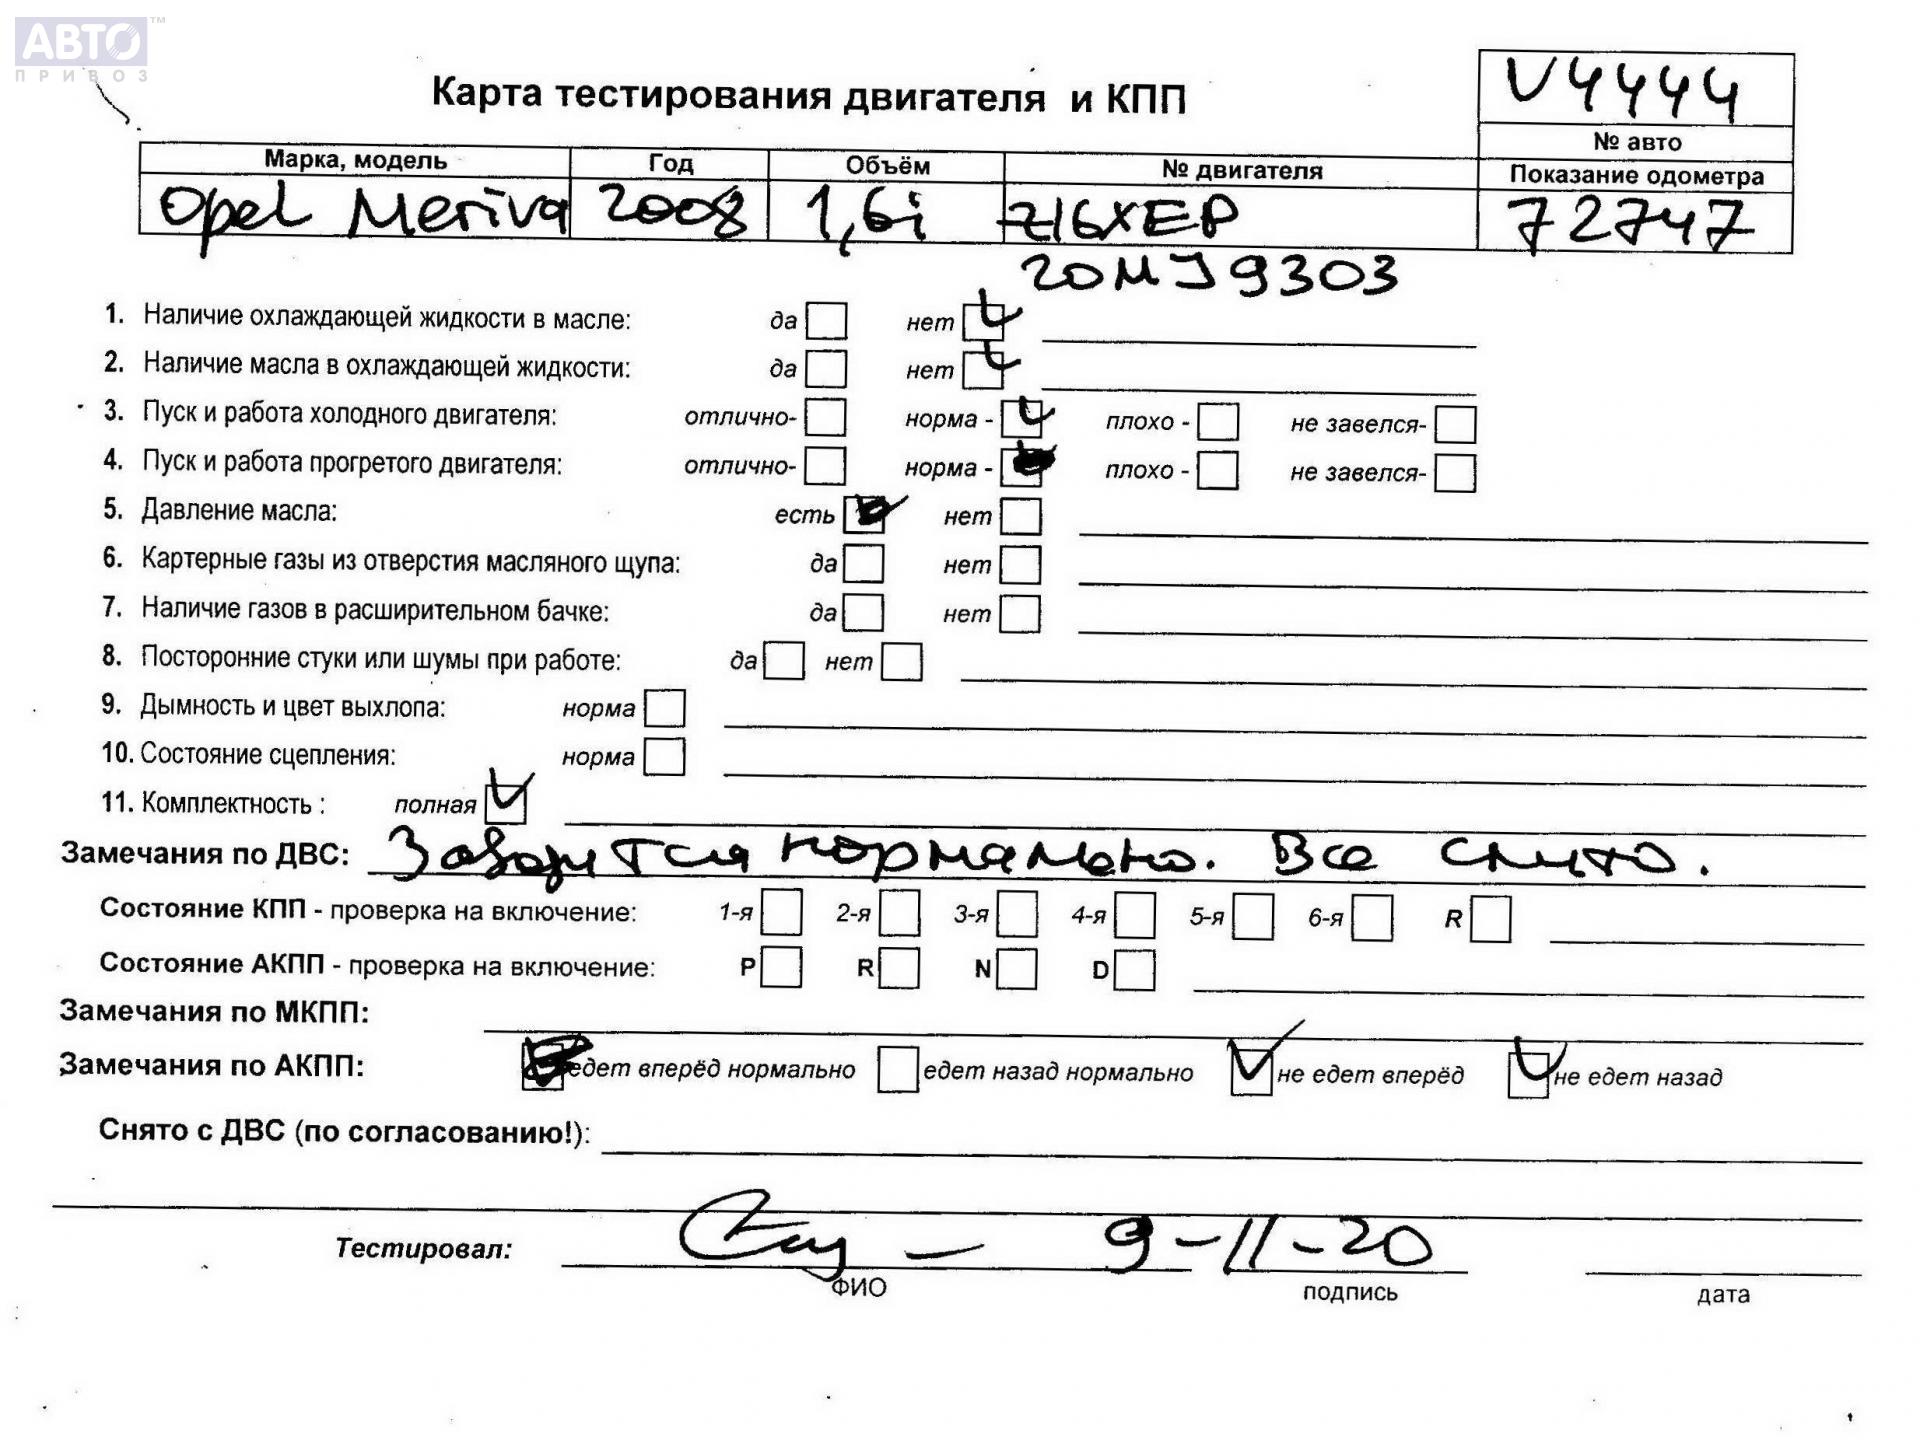 АВТО™
ПРИВОЗ
V4444
Карта тестирования двигателя и КПП
№ авто
Марка, модель Год Объём № двигателя Показание одометра
Opel Meriva 2008 1,6i Z16XEP 72747
20MJ9303
1. Наличие охлаждающей жидкости в масле: да нет
2. Наличие масла в охлаждающей жидкости: да нет
3. Пуск и работа холодного двигателя: отлично- норма - плохо - не завелся-
4. Пуск и работа прогретого двигателя: отлично- норма - плохо - не завелся-
5. Давление масла: есть нет
6. Картерные газы из отверстия масляного щупа: да нет
7. Наличие газов в расширительном бачке: да нет
8. Посторонние стуки или шумы при работе: да нет
9. Дымность и цвет выхлопа: норма
10. Состояние сцепления: норма
11. Комплектность : полная
Замечания по ДВС: Заводится нормально. Все слито.
Состояние КПП - проверка на включение: 1-я 2-я 3-я 4-я 5-я 6-я R
Состояние АКПП - проверка на включение: P R N D
Замечания по МКПП:
Замечания по АКПП: едет вперёд нормально едет назад нормально не едет вперёд не едет назад
Снято с ДВС (по согласованию!):
Тестировал: 9-11-20
ФИО подпись дата